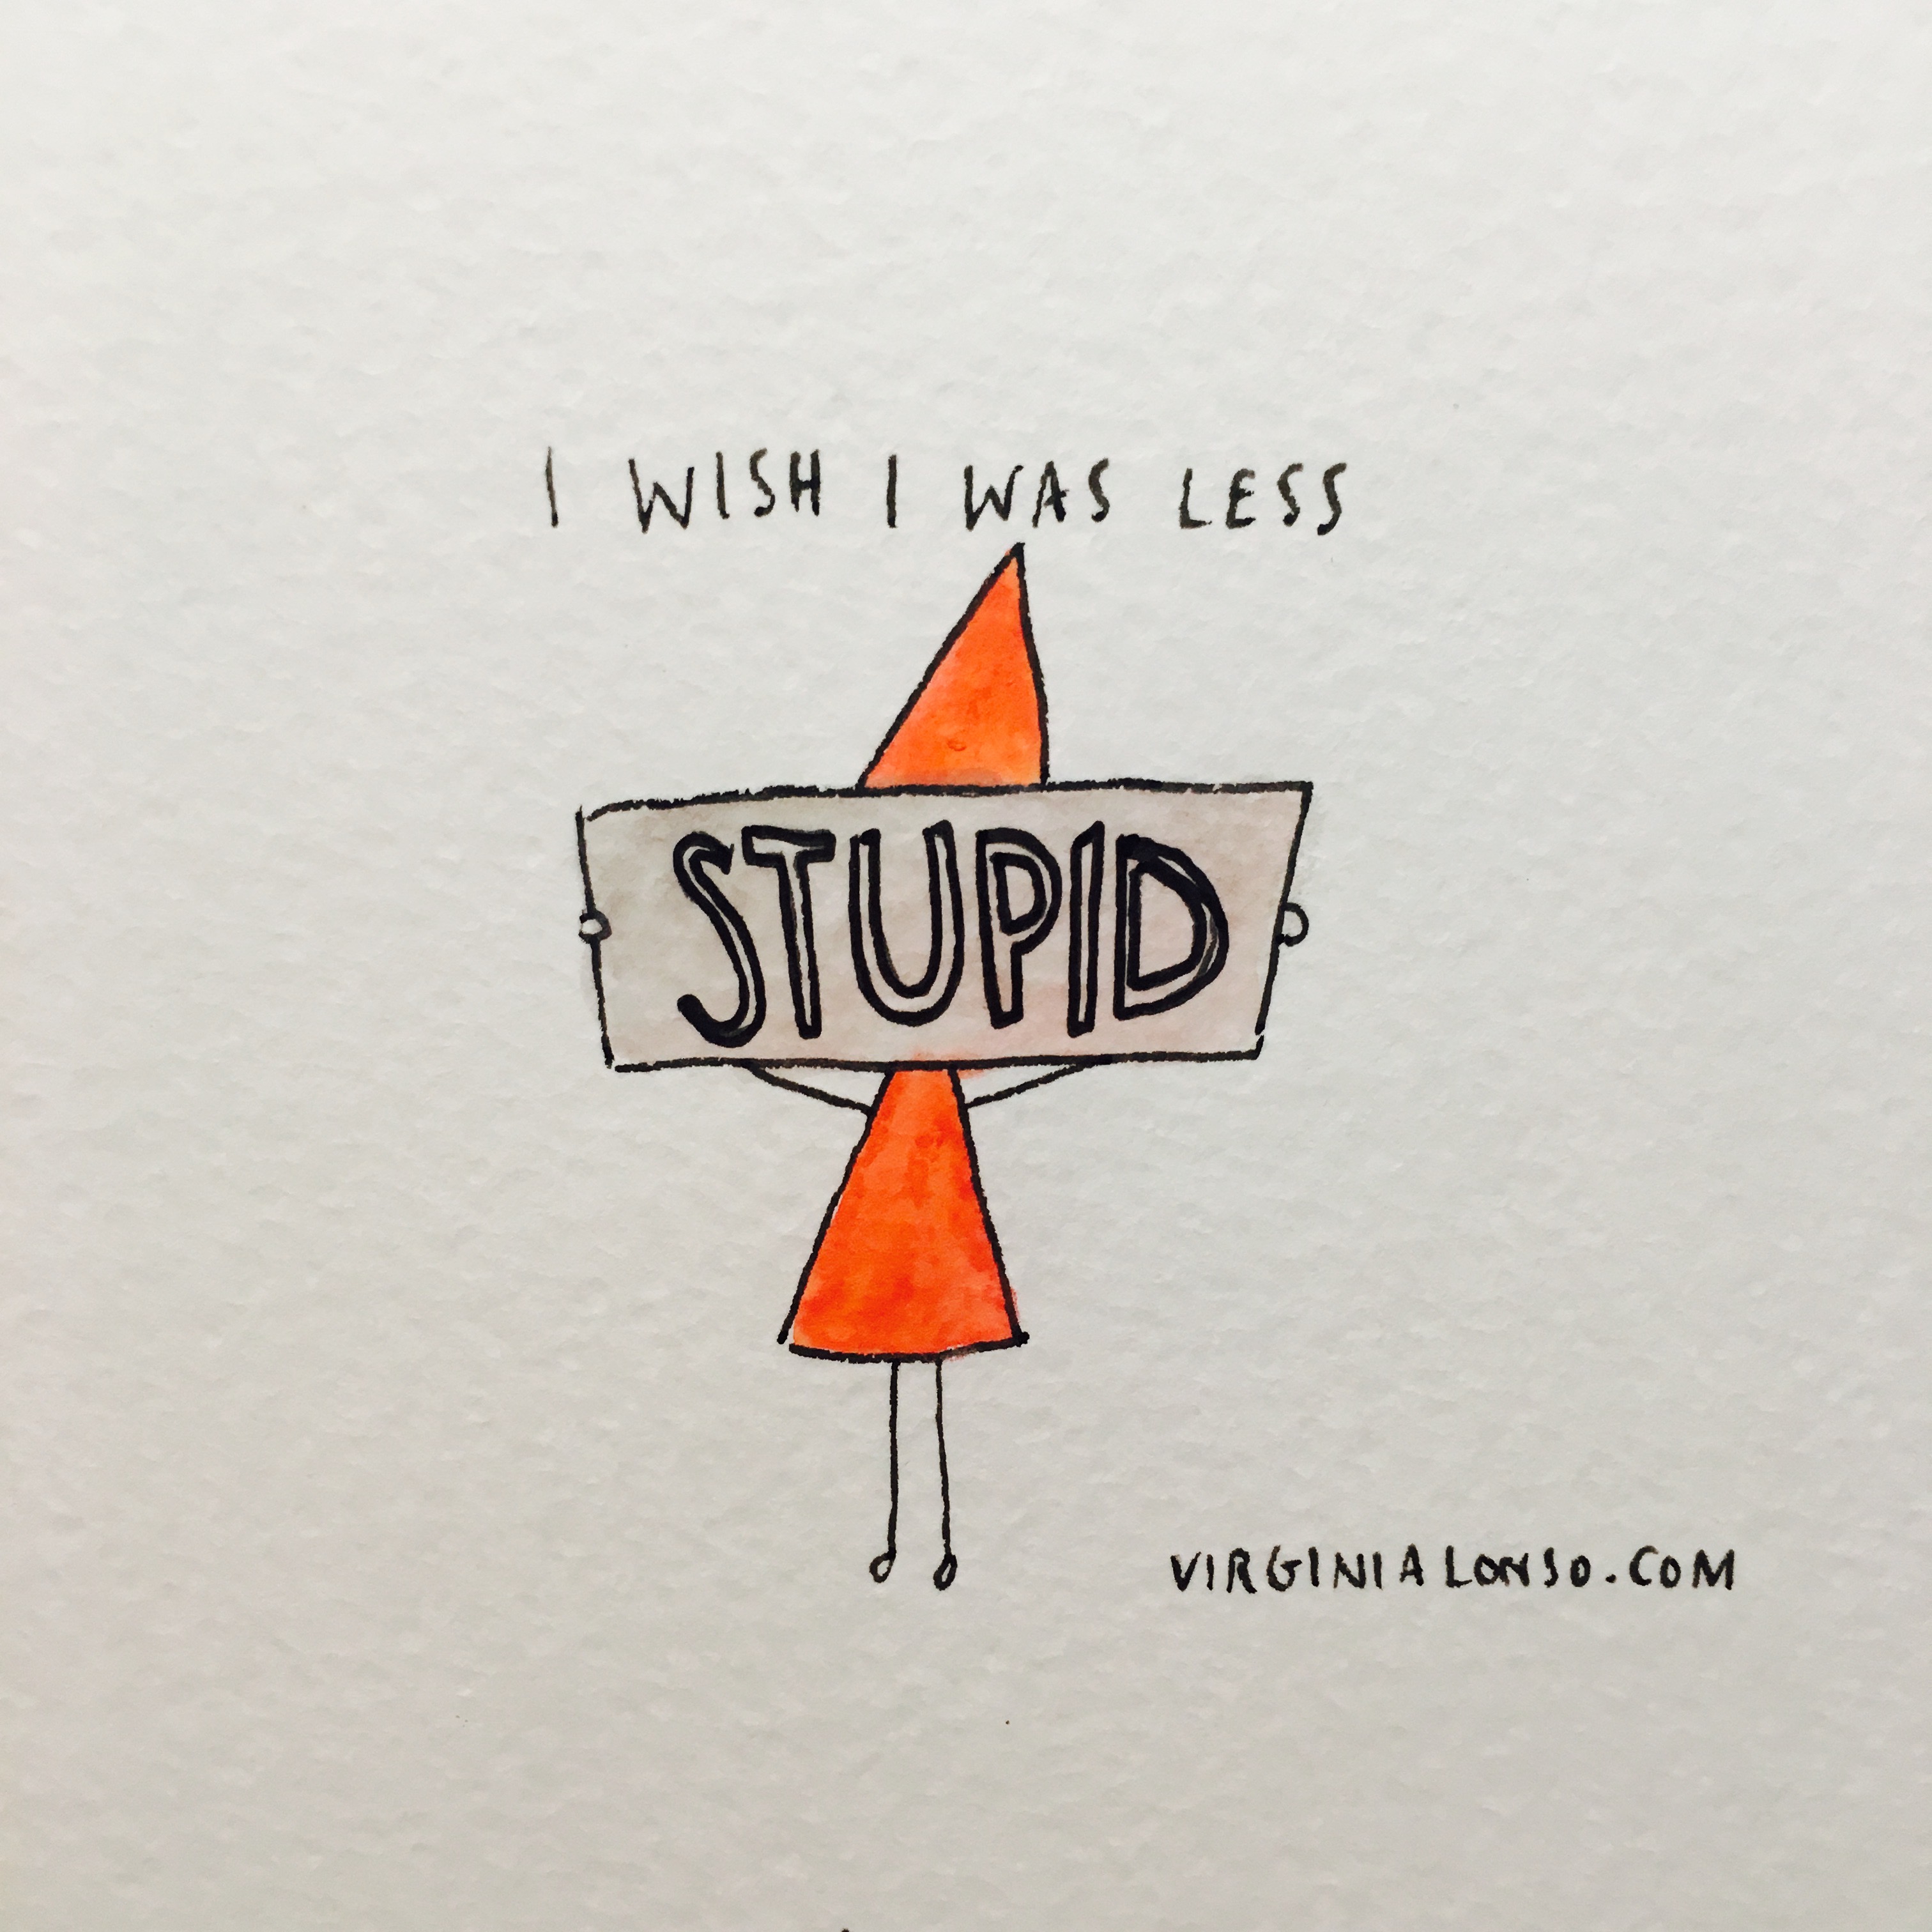 I WISH I WAS LESS
STUPID
VIRGINIALONSO.COM